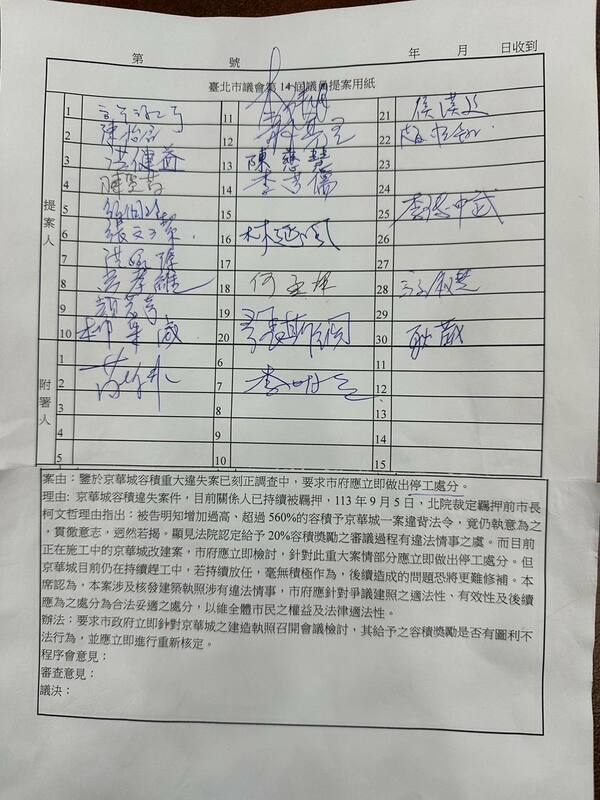 第 號 年 月 日收到
臺北市議會第14屆議員提案用紙
提案人
1 11 21 侯漢廷
2 陳怡君 12 22
3 洪健益 13 陳慈慧 23
4 14 李孝儒 24
5 15 25
6 張文潔 16 林延鳳 26
7 17
8 18 何孟樺 28
9 顏若芳 19 29
10 柳采葳 20 30 耿葳
附署人
1 6 11
2 7 李明賢 12
3 8 13
4 9 14
5 15
案由：鑒於京華城容積重大違失案已刻正調查中，要求市府應立即做出停工處分。
理由: 京華城容積違失案件，目前關係人已持續被羈押，113 年 9 月 5 日、北院裁定羈押前市長
柯文哲理由指出：被告明知增加過高、超過 560%的容積予京華城一案違背法令，竟仍執意為之
，貫徹意志，迥然若揭。顯見法院認定給予 20%容積獎勵之審議過程有違法情事之虞。而目前
正在施工中的京華城改建案，市府應立即檢討，針對此重大案情部分應立即做出停工處分。但
京華城目前仍在持續趕工中，若持續放任，毫無積極作為，後續造成的問題恐將更難修補。本
席認為，本案涉及核發建築執照涉有違法情事，市府應針對爭議建照之適法性、有效性及後續
應為之處分為合法妥適之處分，以維全體市民之權益及法律適法性。
辦法：要求市政府立即針對京華城之建造執照召開會議檢討，其給予之容積獎勵是否有圖利不
法行為，並應立即進行重新核定。
程序會意見：
審查意見：
議決：